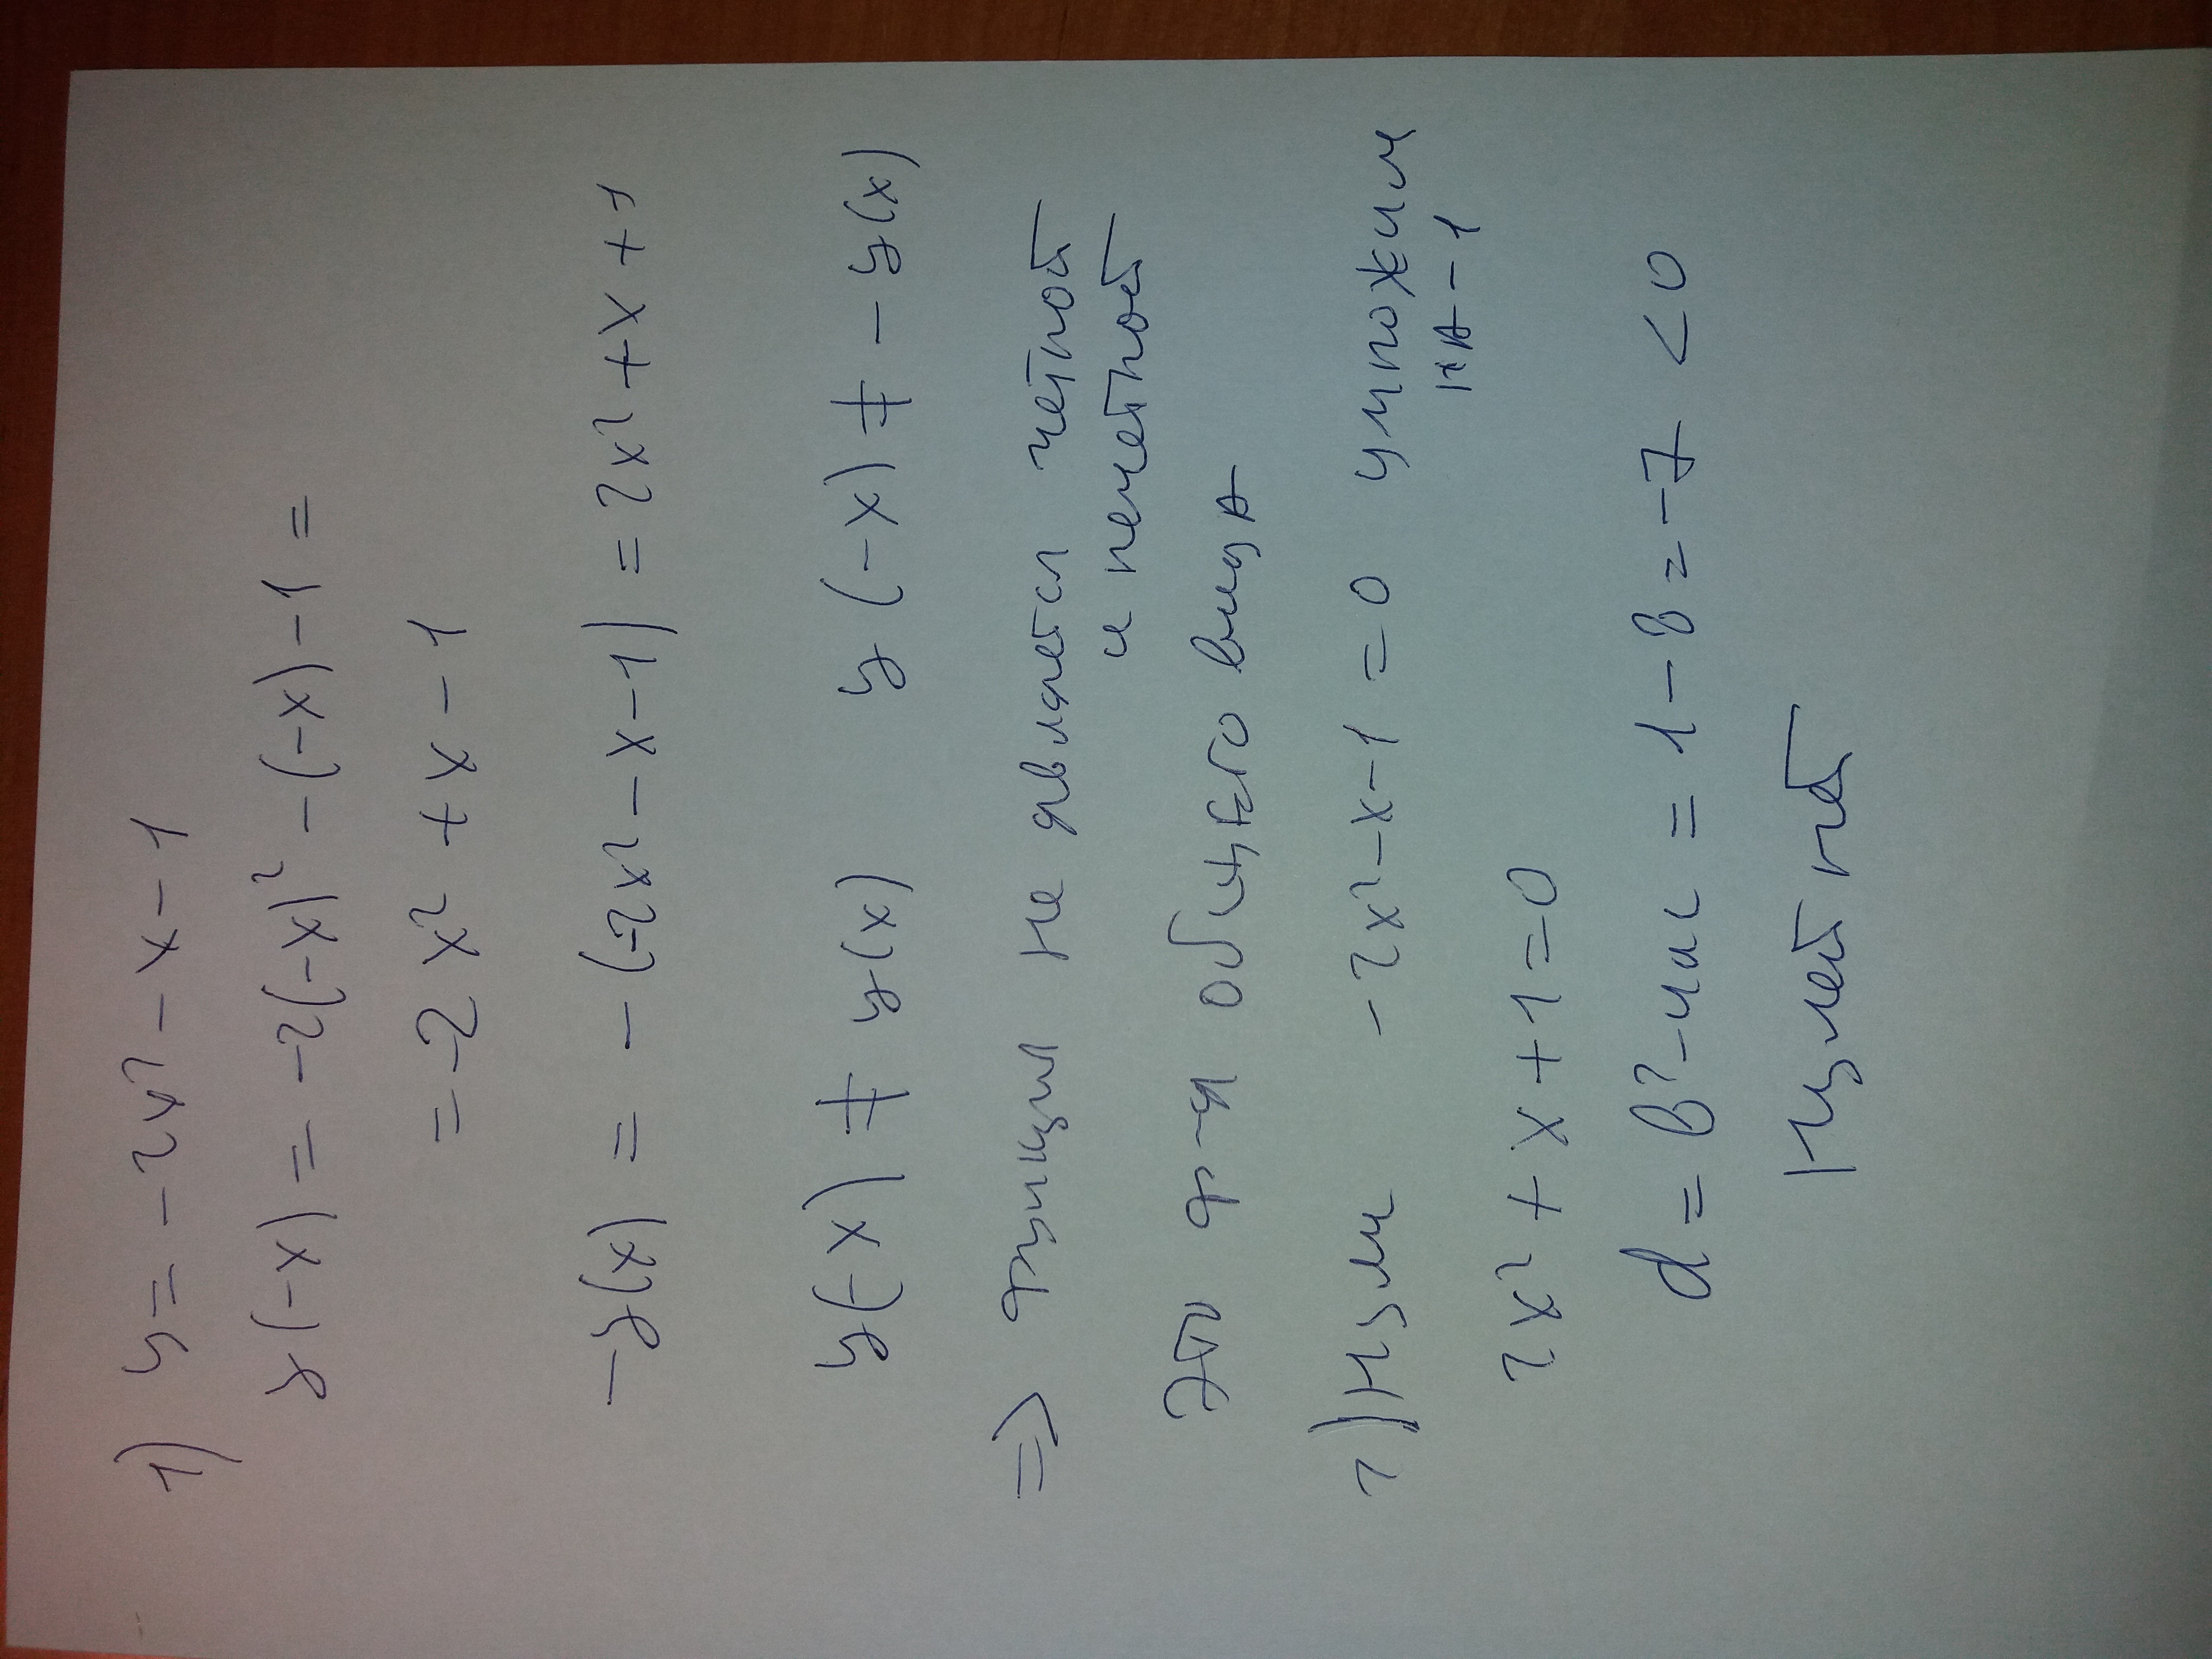 1) y = -2x² - x - 1
y(-x) = -2(-x)² - (-x) - 1 =
= -2x² + x - 1
-y(x) = -(-2x² - x - 1) = 2x² + x + 1
y(-x) ≠ y(x) y(-x) ≠ -y(x)
=> функция не является чётной
и нечётной
Это ф-я общего вида
2) Нули -2x² - x - 1 = 0 умножим
на -1
2x² + x + 1 = 0
d = в² - 4ас = 1 - 8 = -7 < 0
Нулей нет